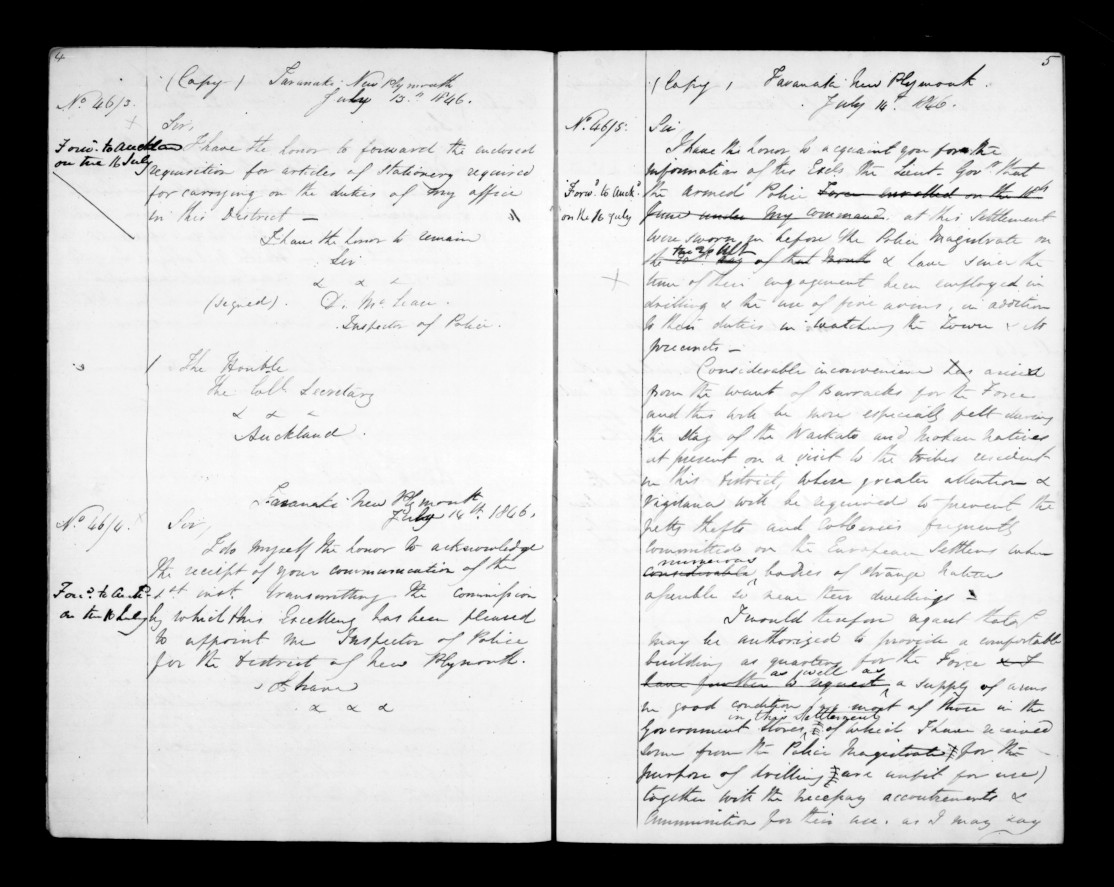 4
(Copy) Taranaki, New Plymouth
July 13th 1846.
No 46/3.
Sir,
Forwd. to Auckland
on the 16 July
I have the honor to forward the enclosed
requisition for articles of Stationery required
for carrying on the duties of my office
in this District —
I have the honor to remain
Sir
& & &
(signed). D. McLean.
Inspector of Police.
The Honble
The Coll Secretary
& & &
Auckland.
Taranaki New Plymouth
July 14th. 1846.
No 46/4.
Sir,
I do myself the honor to acknowledge
the receipt of your communication of the
Forwd. to Auckd.
on the 16 July
1st inst. transmitting the commission
by which His Excellency has been pleased
to appoint me Inspector of Police
for the District of New Plymouth.
I have
& & &
5
(Copy) Taranaki New Plymouth.
July 14th. 1846.
No. 46/5.
Sir
I have the honor to acquaint you for the
information of His Excly the Lieut. Govr. that
Forwd. to Auckd.
on the 16 July
the armed Police Force enrolled on the
June under my command. at this settlement
were sworn in before the Police Magistrate on
the day of that month & have since the
time of their engagement been employed in
drilling & the use of fire arms, in addition
to their duties in watching the Town & its
precincts —
Considerable inconvenience has arisen
from the want of Barracks for the Force
and this will be more especially felt during
the stay of the Waikato and Mokau natives
at present on a visit to the tribes resident
in this District, where greater attention &
vigilance will be required to prevent the
petty thefts and robberies frequently
committed on the European Settlers when
numerous
considerable bodies of strange natives
assemble so near their dwellings —
I would therefore request that I
may be authorized to provide a comfortable
building as quarters for the Force & I
as well as
have further to request a supply of arms
in good condition, for most of those in the
in this Settlement
Government Stores, (of which I have received
some from the Police Magistrate for the
purpose of drilling are unfit for use)
together with the necessary accoutrements &
ammunition for their use. as I may say